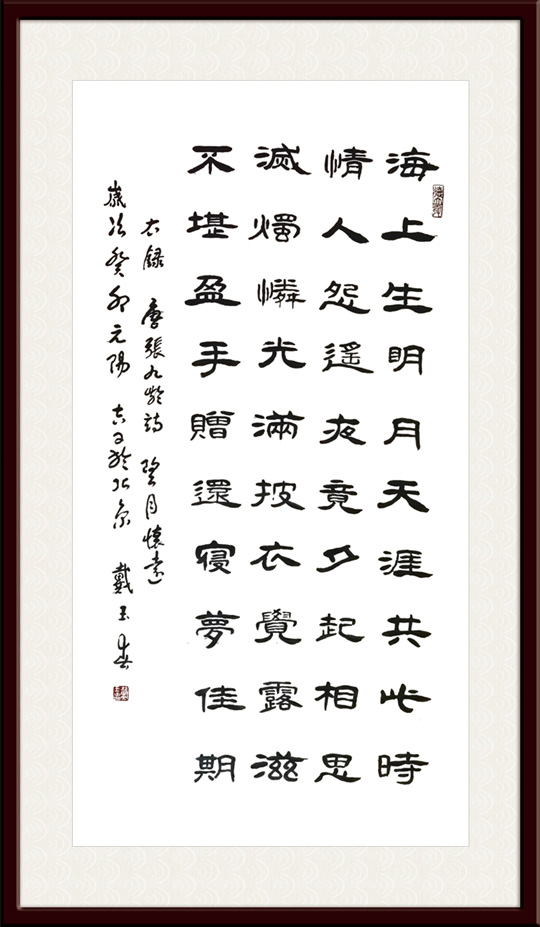 海上生明月天涯共此時
情人怨遙夜竟夕起相思
滅燭憐光滿披衣覺露滋
不堪盈手贈還寢夢佳期
右錄 唐張九齡詩 望月懷遠
歲次癸卯元陽 於北京 戴玉春